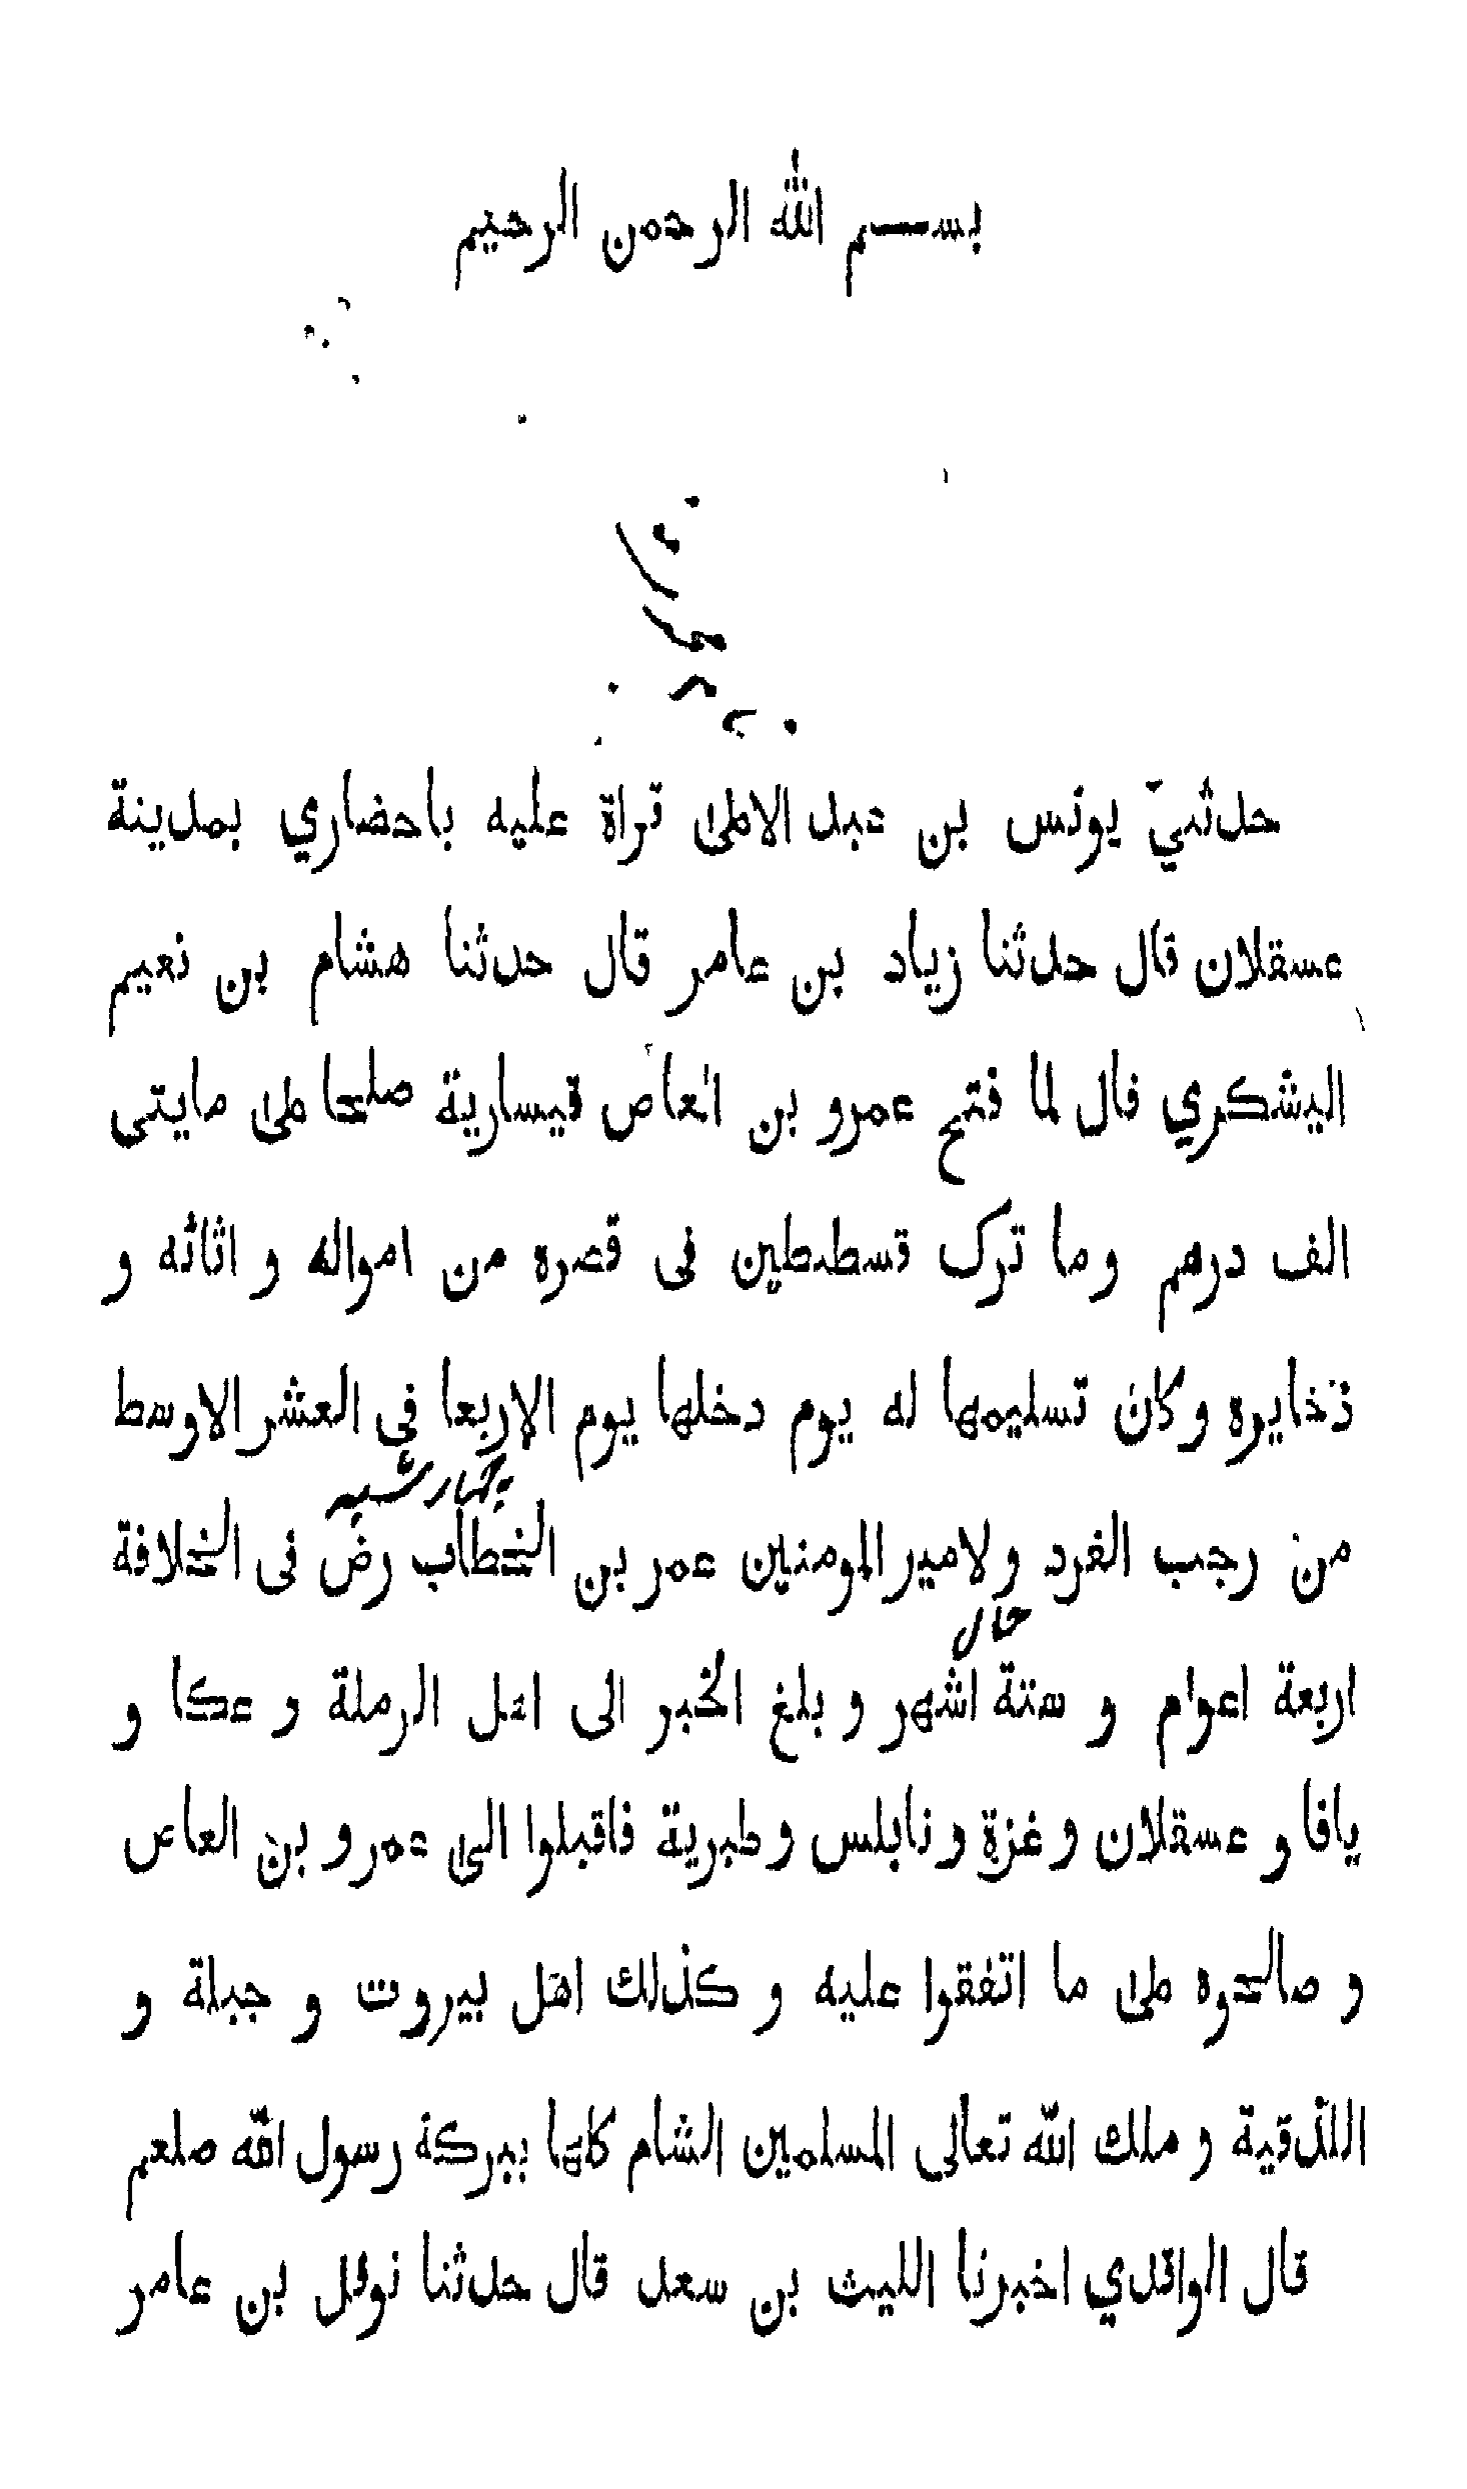 بسم الله الرحمن الرحيم
حدثنيّ يونس بن عبد الاعلى قراة عليه باحضاري بمدينة
عسقلان قال حدثنا زياد بن عامر قال حدثنا هشام بن نعيم
اليشكري قال لما فتح عمرو بن العاص قيسارية صلحا على مايتى
الف درهم وما ترك قسطنطين فى قصره من امواله و اثاثه و
ذخايره وكان تسليمها له يوم دخلها يوم الاربعا فى العشر الاوسط
چهارشنبه
من رجب الفرد ولامير المومنين عمر بن الخطاب رض فى الخلافة
اربعة اعوام و ستة اشهر و بلغ الخبر الى اهل الرملة و عكا و
يافا و عسقلان و غزة و نابلس و طبرية فاقبلوا الى عمرو بن العاص
و صالحوه على ما اتفقوا عليه و كذلك اهل بيروت و جبلة و
اللاذقية و ملك الله تعالى المسلمين الشام كلها ببركة رسول الله صلعم
قال الواقدي اخبرنا الليث بن سعد قال حدثنا نوفل بن عامر